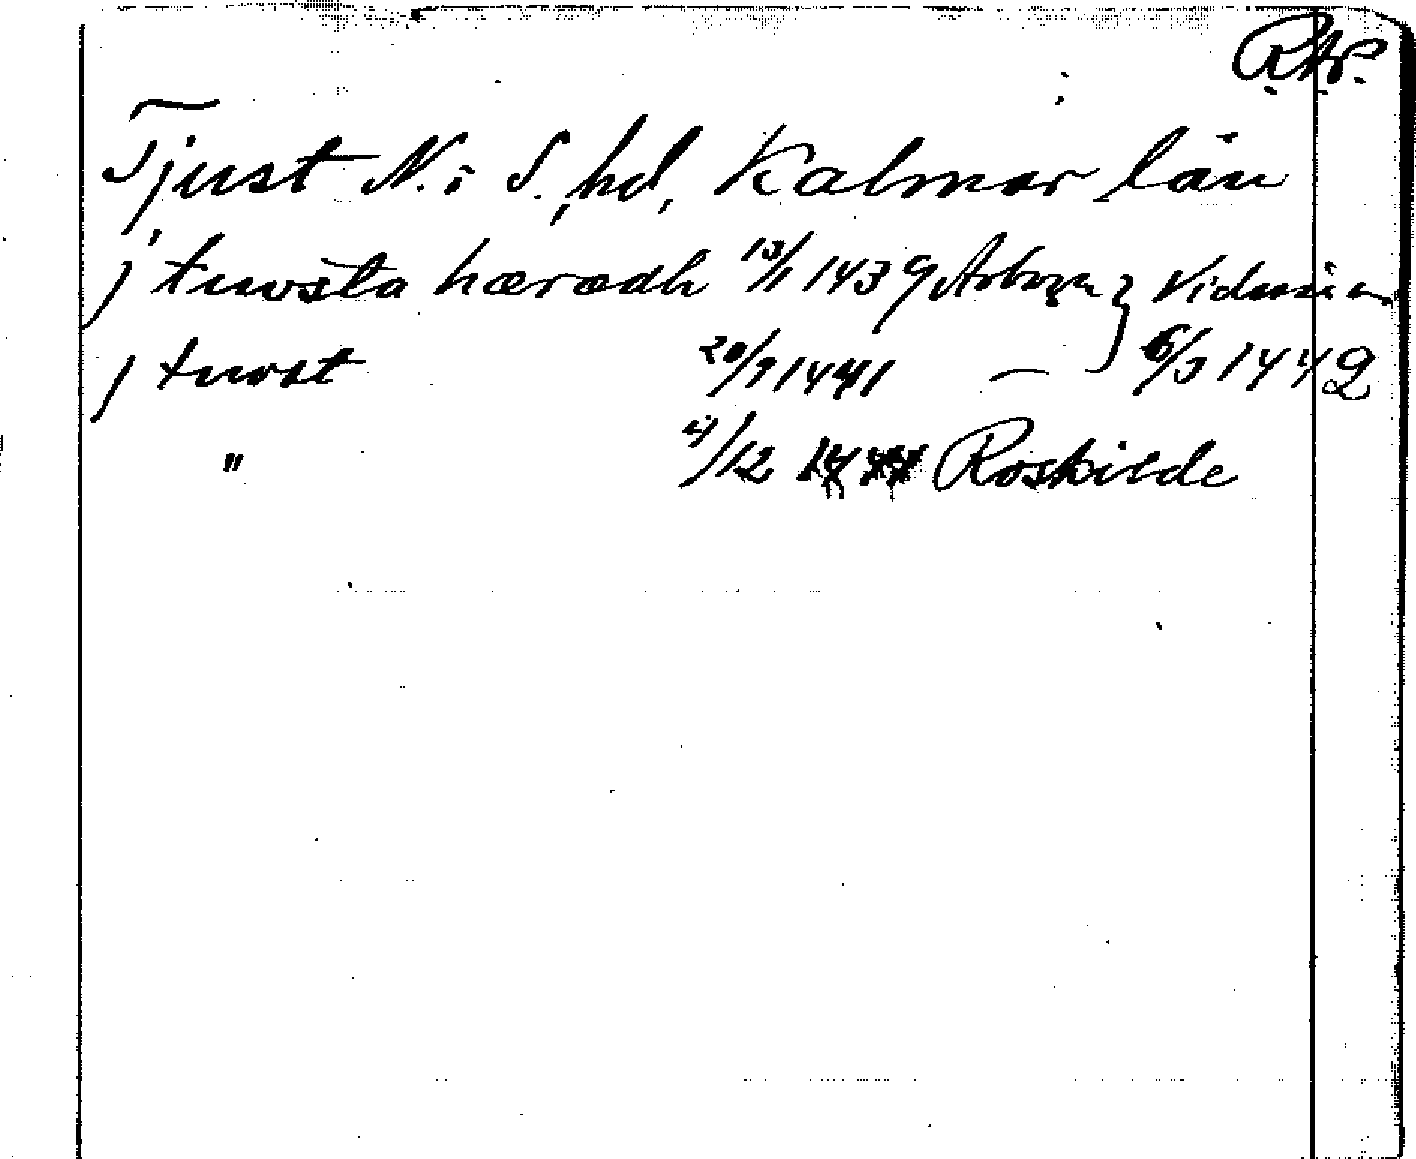 Tjust N. i S. hd, Kalmar län
j twosta hæradh 13/1 1439 Arboga } Vidimeran.
j twost 20/7 1441 — } 6/3 1442
" /12 1444 Roskilde